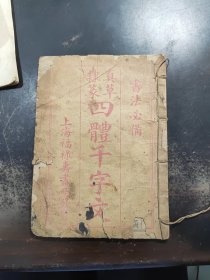 書法必備
真草
隸篆
四體千字文
上海